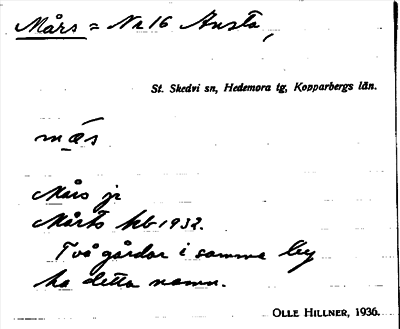 Mårs = Nr 16 Husta,
St. Skedvi sn, Hedemora tg, Kopparbergs län.
mæs
Mårs jr
Mårts kb 1932.
Två gårdar i samma by
ha detta namn.
OLLE HILLNER, 1936.